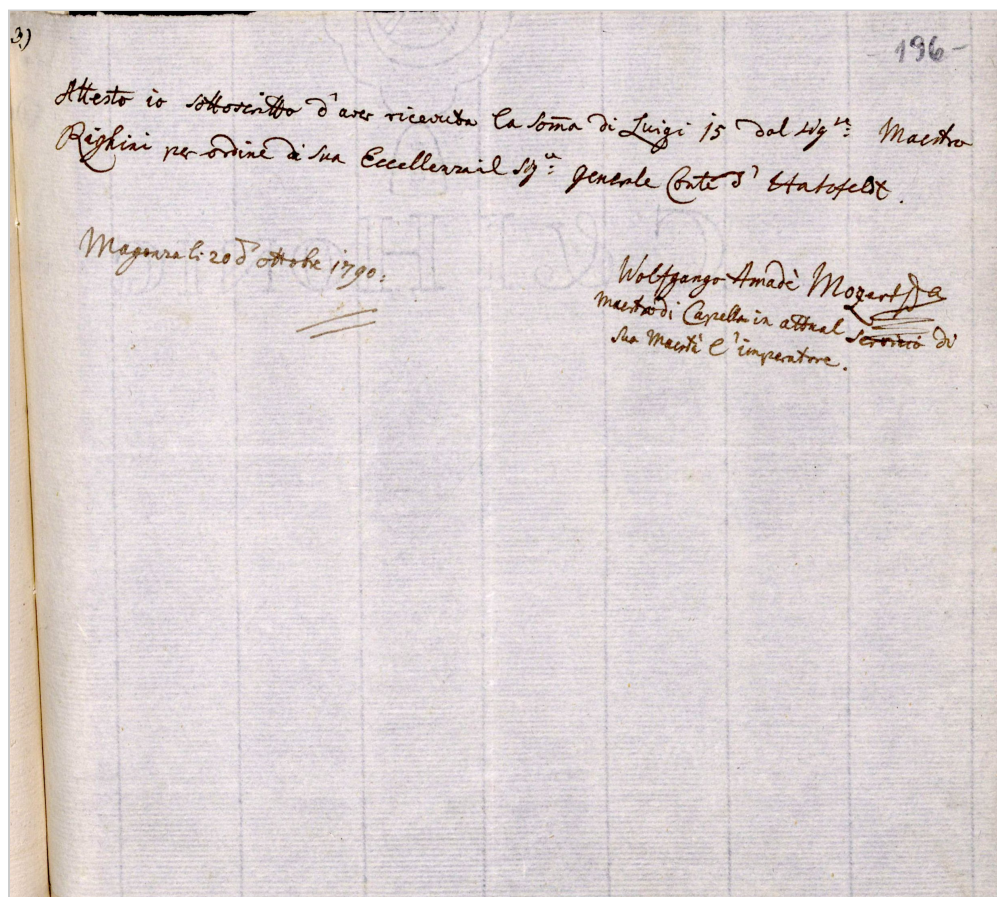 3)
196
Attesto io sottoscritto d'aver ricevuta la som̄a di Luigi 15 dal Sigre: Maestro
Righini per ordine di Sua Eccellenza il Sigre: generale Conte d'Hatzfeldt.
Magonza li 20 d'ottobre 1790:
Wolfgango Amadè Mozart
Maestro di Capella in attual servizio di
Sua Maestà l'imperatore.